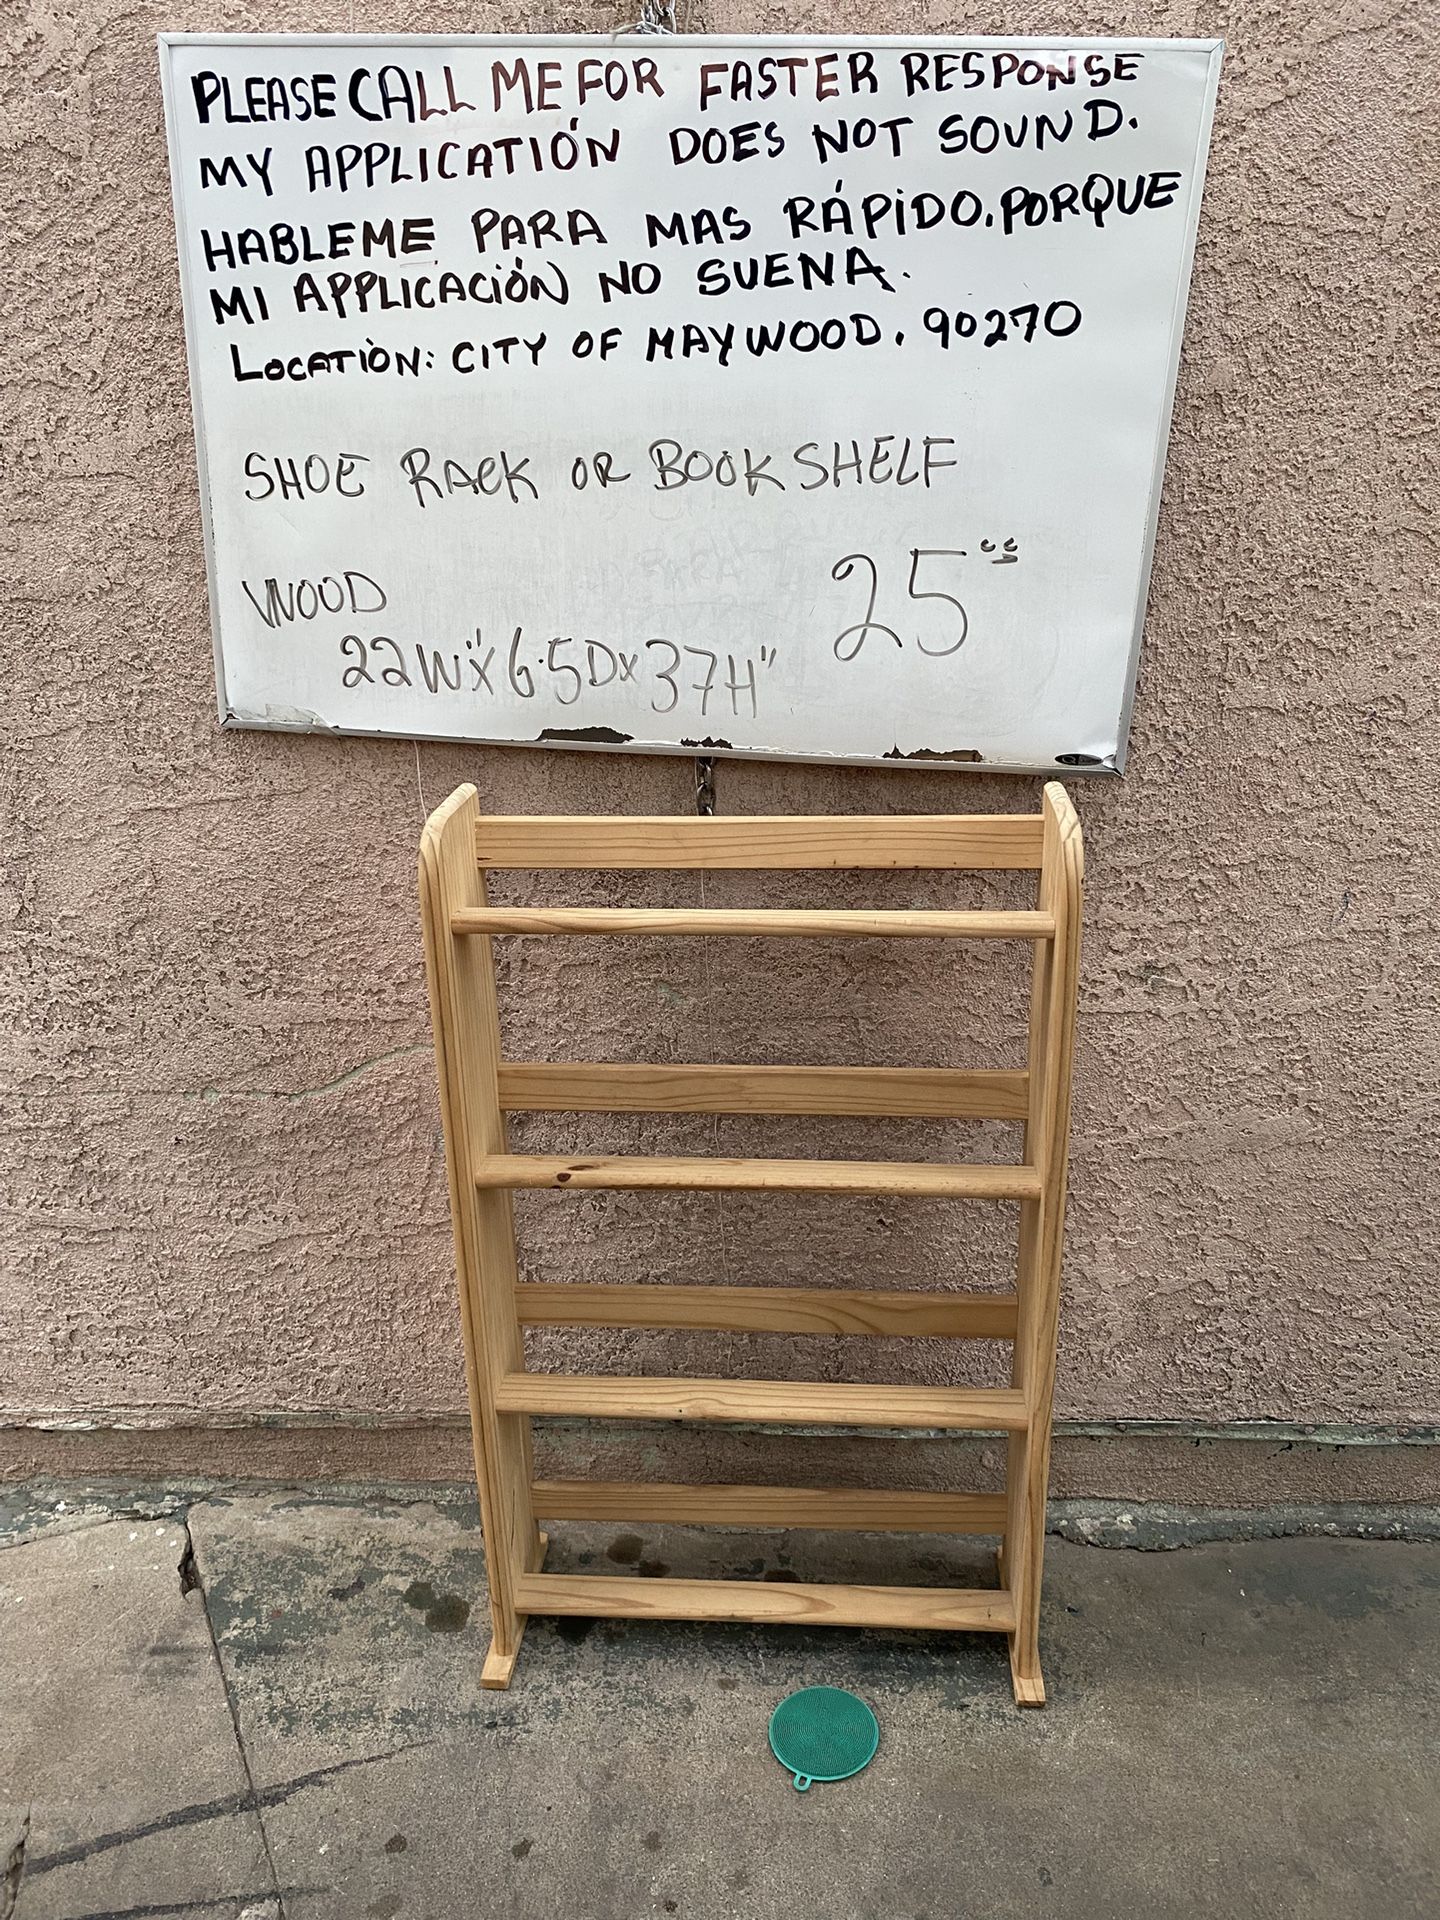 PLEASE CALL ME FOR FASTER RESPONSE
MY APPLICATIÓN DOES NOT SOUND.
HABLEME PARA MAS RÁPIDO. PORQUE
MI APPLICACIÓN NO SUENA.
LOCATION: CITY OF MAYWOOD. 90270
SHOE RACK OR BOOK SHELF
WOOD
25
22W"X6.5DX37H"